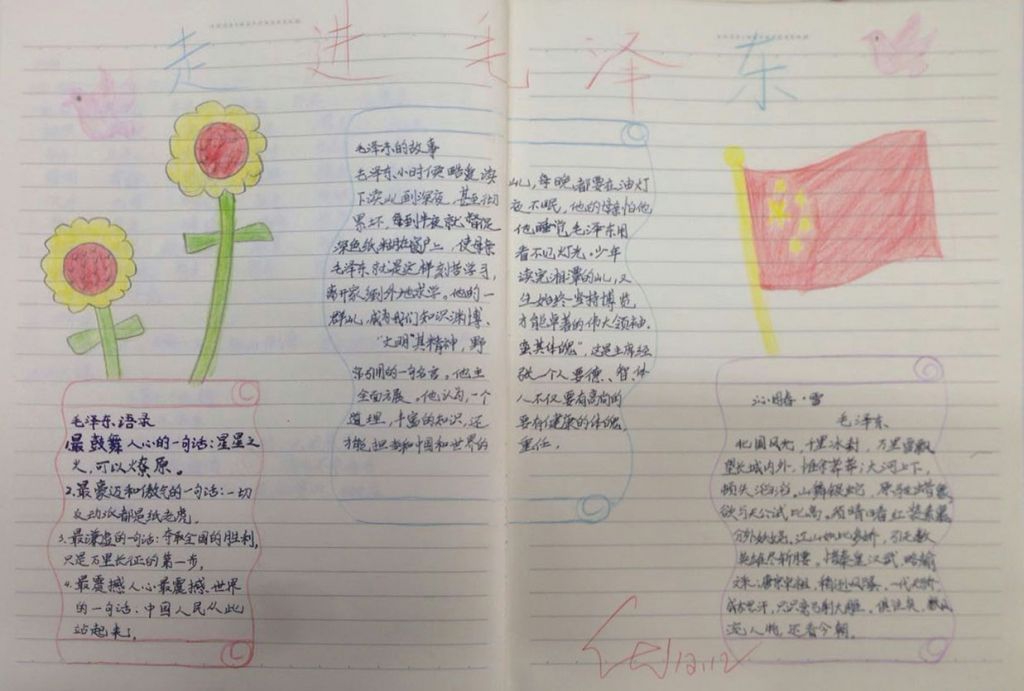 走进毛泽东
毛泽东的故事
毛泽东小时候酷爱读山,每晚都要在油灯
下读山到深夜,甚至彻夜不眠,他的母亲怕他
累坏,每到半夜就督促他睡觉,毛泽东用
深色纸粘在窗户上,使母亲看不见灯光。少年
毛泽东就是这样刻苦学习,读完湘潭的山,又
离开家到外地求学。他的一生始终坚持博览
群山,成为我们知识渊博、才能卓著的伟大领袖。
"文明其精神,野蛮其体魄",这是主席经
常引用的一句名言。他主张一个人要德、智、体
全面发展。他认为,一个人不仅要有高尚的
道理,丰富的知识,还要有健康的体魄
才能担当和中国和世界的重任。
毛泽东语录
1.最鼓舞人心的一句话:星星之
火,可以燎原。
2.最豪迈和傲气的一句话:一切
反动派都是纸老虎。
3.最谦虚的一句话:夺取全国的胜利,
只是万里长征的第一步。
4.最震撼人心最震撼世界
的一句话:中国人民从此
站起来了。
沁园春·雪
毛泽东
北国风光,千里冰封,万里雪飘
望长城内外,惟余莽莽;大河上下,
顿失滔滔。山舞银蛇,原驰蜡象,
欲与天公试比高。须晴日看红装素裹
分外妖娆。江山如此多娇,引无数
英雄尽折腰。惜秦皇汉武,略输
文采;唐宗宋祖,稍逊风骚。一代天骄,
成吉思汗,只识弯弓射大雕。俱往矣,数风
流人物,还看今朝。
12.12